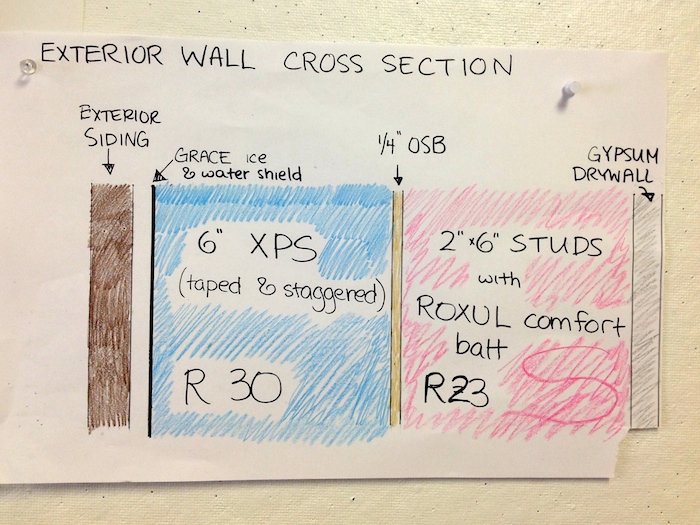 EXTERIOR WALL CROSS SECTION
EXTERIOR
SIDING
GRACE ice
& water shield
1/4" OSB
GYPSUM
DRYWALL
6" XPS
(taped & staggered)
R 30
2"x6" STUDS
with
ROXUL comfort
batt
R23